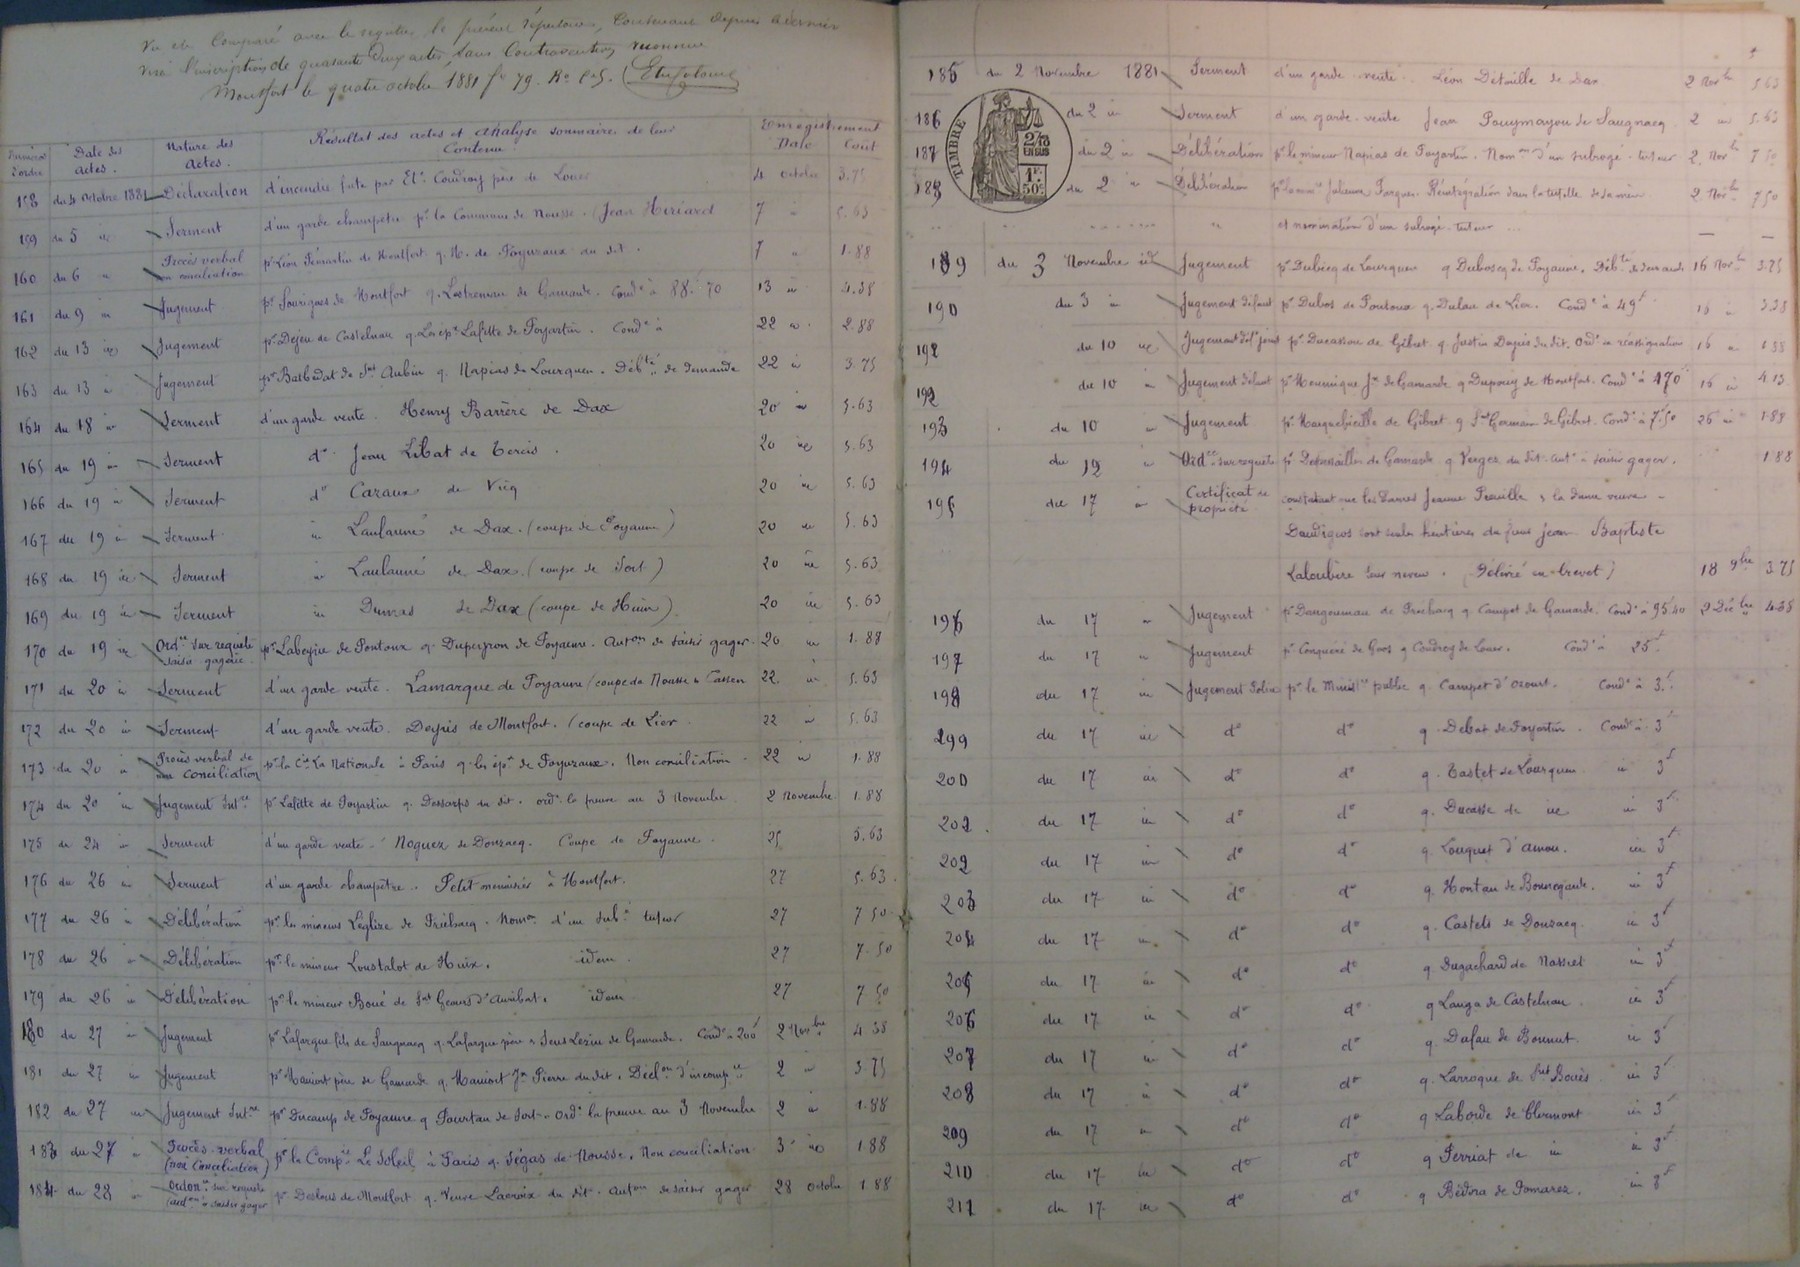 Vu et Comparé avec le registre le présent répertoire, Contenant depuis le dernier
visa l'inscription de quarante deux actes, sans Contravention reconnue
Montfort le quatre octobre 1881 f° 79. Ro
Date des actes. Nature des actes. Résultat des actes et Analyse sommaire de leur Contenu Enregistrement Date Coût
158 du 4 octobre 1881 Déclaration d'incendie faite par Coudroy père de Louer 4 octobre 3.75
159 du 5 id Serment d'un garde champêtre pr la Commune de Nousse. (Jean Hiriard 7 " 5.63
160 du 6 " Procès verbal non conciliation pr Léon de Montfort q. de Poyuzaux du dit. 7 " 1.88
161 du 9 id Jugement de Montfort q. de Gamarde. Condn à 88.70 13 id 4.38
162 du 13 id Jugement pr Dejeu de Castelnau q. Les épx Lafitte de Poyartin. Condn à 22 id 2.88
163 du 13 id Jugement pr Barbedat de St Aubin q. Napias de Lourquen. Débté de demande 22 id 3.75
164 du 18 id Serment d'un garde vente. Henry Barrère de Dax 20 id 5.63
165 du 19 id Serment do Jean Libat de Tercis. 20 id 5.63
166 du 19 id Serment do Cazaux de Vicq 20 id 5.63
167 du 19 id Serment id Laulauné de Dax. (coupe de Poyanne) 20 id 5.63
168 du 19 id Serment id Laulauné de Dax. (coupe de Sort) 20 id 5.63
169 du 19 id Serment id Dumas de Dax (coupe de Hinx) 20 id 5.63
170 du 19 id Ordce sur requete saisie-gagerie. pr Labeyrie de Pontoux q. Dupeyron de Poyanne. Auton de saisir gager 20 id 1.88
171 du 20 id Serment d'un garde vente. Lamarque de Poyanne (coupe de Nousse & Cassen 22 id 5.63
172 du 20 id Serment d'un garde vente. Depis de Montfort. (coupe de Lier 22 id 5.63
173 du 20 id Procès verbal de non conciliation pr la Cie La Nationale à Paris q. les épx de Poyuzaux. Non conciliation 22 id 1.88
174 du 20 id Jugement Intre pr Lafitte de Poyartin q. Dessarps du dit. ordt la preuve au 3 Novembre 2 Novembre 1.88
175 du 24 id Serment d'un garde vente. Noguez de Donzacq. Coupe de Poyanne. 25 5.63
176 du 26 id Serment d'un garde champêtre. Petit menuisier à Montfort. 27 5.63
177 du 26 id Délibération pr les mineurs Léglize de Préchacq. Nomon d'un subé tuteur 27 7.50
178 du 26 id Délibération pr le mineur Loustalot de Hinx. idem. 27 7.50
179 du 26 id Délibération pr le mineur Boué de St Geours d'Auribat. idem. 27 7.50
180 du 27 id Jugement pr Lafargue fils de Saugnacq q. Lafargue père & Sens Lesine de Gamarde. Condn à 200f 2 Novbre 4.38
181 du 27 id Jugement pr Maniort père de Gamarde q. Maniort Jn Pierre du dit. Décl. d'incompce 2 id 3.75
182 du 27 id Jugement Intre pr Ducamp de Poyanne q. Pourtau de Sort. Ordt la preuve au 3 Novembre 2 id 1.88
183 du 27 id Procès-verbal (non Conciliation) pr la Compie Le Soleil à Paris q. Ségas de Nousse. Non conciliation 3 id 1.88
184 du 28 id Ordonce sur requete (auton à saisir gager pr Deslous de Montfort q. Veuve Lacroix du dit. Auton de saisir gager 28 octobre 1.88
185 du 2 Novembre 1881 Serment d'un garde-vente. Léon Détaille de Dax. 2 Novbre 5.63
186 du 2 id Serment d'un garde-vente Jean Pouymayou de Saugnacq 2 id 5.63
TIMBRE
2/10 EN SUS
1F. 50c
187 du 2 id Délibération pr le mineur Napias de Poyartin. Nomon d'un subrogé-tuteur 2 Novbre 7.50
188 du 2 id Délibération Julienne Farguer. Réintégration dans la tutelle de sa mère 2 Novbre 7.50
et nomination d'un subrogé-tuteur
189 du 3 Novembre id Jugement pr Dubecq de Lourquen q Duboscq de Poyanne. Débté de demande 16 Novbre 3.75
190 du 3 id Jugement défaut pr Dubos de Pontoux q. Dulau de Lier. Condn à 49f 16 id 3.38
191 du 10 id Jugement deft joint pr Ducasson de Gibret q. Justin Dupis du dit. Ordt la réassignation 16 id 1.88
192 du 10 id Jugement défaut pr Meunique Jn de Gamarde q Dupouy de Montfort. Condn à 170f 16 id 4.13
193 du 10 id Jugement de Gibret q St Germain de Gibret. Condn à 7f50 26 id 1.88
194 du 12 id Ordce sur requête de Gamarde q Verges du dit. Auton à saisir gager. 1.88
195 du 17 id Certificat de propriété constatant que les Dames Jeanne & la dame veuve
Daudigeos sont seules héritières du sieur jean Baptiste
Laloubère leur neveu. (Délivré en brevet) 18 9bre 3.75
196 du 17 id Jugement pr Dangoumau de Préchacq q. Campet de Gamarde. Condn à 95f40 2 Décbre 4.38
197 du 17 id Jugement pr Conquéré de Goos q Coudroy de Louer. Condn à 25f
198 du 17 id Jugement Police pr le Minisre public q. Campet d'Ozourt. Condn à 3f
199 du 17 id do do q. Debat de Poyartin. Condn à 3f
200 du 17 id do do q. Tastet de Lourquen id 3f
201 du 17 id do do q. Ducasse de id id 3f
202 du 17 id do do q. Louquet d'Amou. id 3f
203 du 17 id do do q. Hontan de Bonnegarde. id 3f
204 du 17 id do do q. Castets de Donzacq. id 3f
205 du 17 id do do q Dugachard de Nassiet id 3f
206 du 17 id do do q Lauga de Castelnau id 3f
207 du 17 id do do q. Dufau de Bonnut. id 3f
208 du 17 id do do q. Larroque de St Boués id 3f
209 du 17 id do do q Laborde de Clermont id 3f
210 du 17 id do do q Ferriat de id id 3f
211 du 17 id do do q Bédora de Pomarez. id 3f